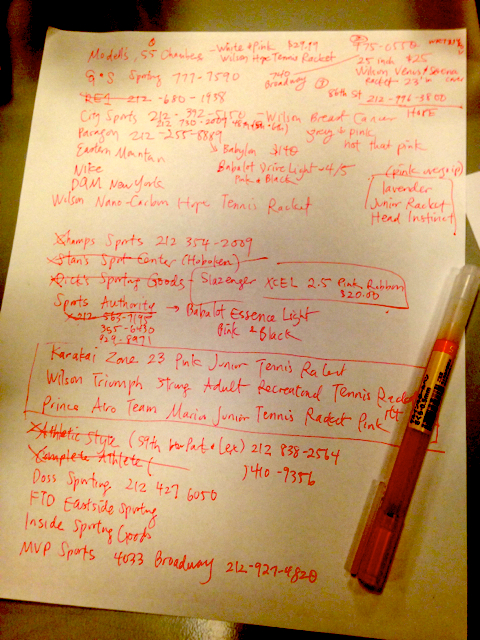 Modells, 55 Chambers - White & Pink $29.99
Wilson Hope Tennis Racket
975-0550
25 inch $25
Wilson Venus & Serena
Racket 23" in cover
G & S Sporting 777-7590
Broadway
86th St 212-996-3800
REI 212-680-1938
City Sports 212-
- Wilson Breast Cancer HOPE
grey & pink
not that pink
Paragon 212-255-8889
Eastern Mountain
→ Babylon $140
Nike
Babalot Drive Light - 4/5
Pink & Black
DGM New York
Wilson Nano-Carbon Hope Tennis Racket
(pink
lavender
Junior Racket
Head Instinct
Champs Sports 212 354-2009
Stan's Sport Center (Hoboken)
Dick's Sporting Goods - Slazenger XCEL 2.5 Pink Ribbon
$20.00
Sports Authority → Babalot Essence Light
Pink & Black
355-6430
929-8971
Karakai Zone 23 Pink Junior Tennis Racket
Wilson Triumph Strung Adult Recreational Tennis Racket
Prince Airo Team Maria Junior Tennis Racket Pink
Athletic Style (59th btw Park & Lex) 212 838-2564
Complete Athlete ( ) 410-9356
Doss Sporting 212 427 6050
FTD Eastside Sporting
Inside Sporting Goods
MVP Sports 4033 Broadway 212-927-4820